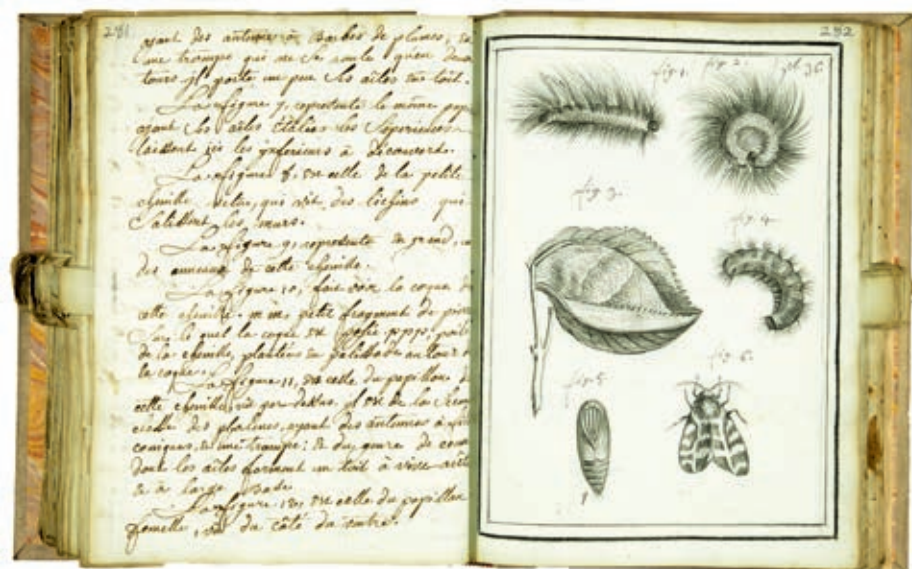 281
ayant des antennes à Barbes de plumes, et
une trompe qui ne se roule qu'en deux
tours, il porte un peu les aîles en toit.
La figure 7, represente le même pap
ayant les aîles étalées les Superieures
laissent les inferieurs à Découvert.
La figure 8, est celle de la petite
chenille velue, qui vit des lichens qui
Salissent les murs.
La figure 9, represente en grand, un
des anneaux de cette chenille.
La figure 10, fait voir la coque de
cette chenille. m m petit fragment de pierre
Sur le quel la coque est posée. pppp, poils
de la chenille, plantées en palissade au tour de
la coque.
La figure 11, est celle du papillon de
cette chenille, vû par dessus. il est de la Secon
classe des phalenes, ayant des antennes à
coniques, & une trompe; & du genre de ceux
dont les aîles forment un toit à vive arête
& à large Base.
La figure 12, est celle du papillon
femelle, vû du côté du ventre.
282
fig. 1.
fig. 2.
pl. 36.
fig. 3.
fig. 4.
fig. 5.
fig. 6.